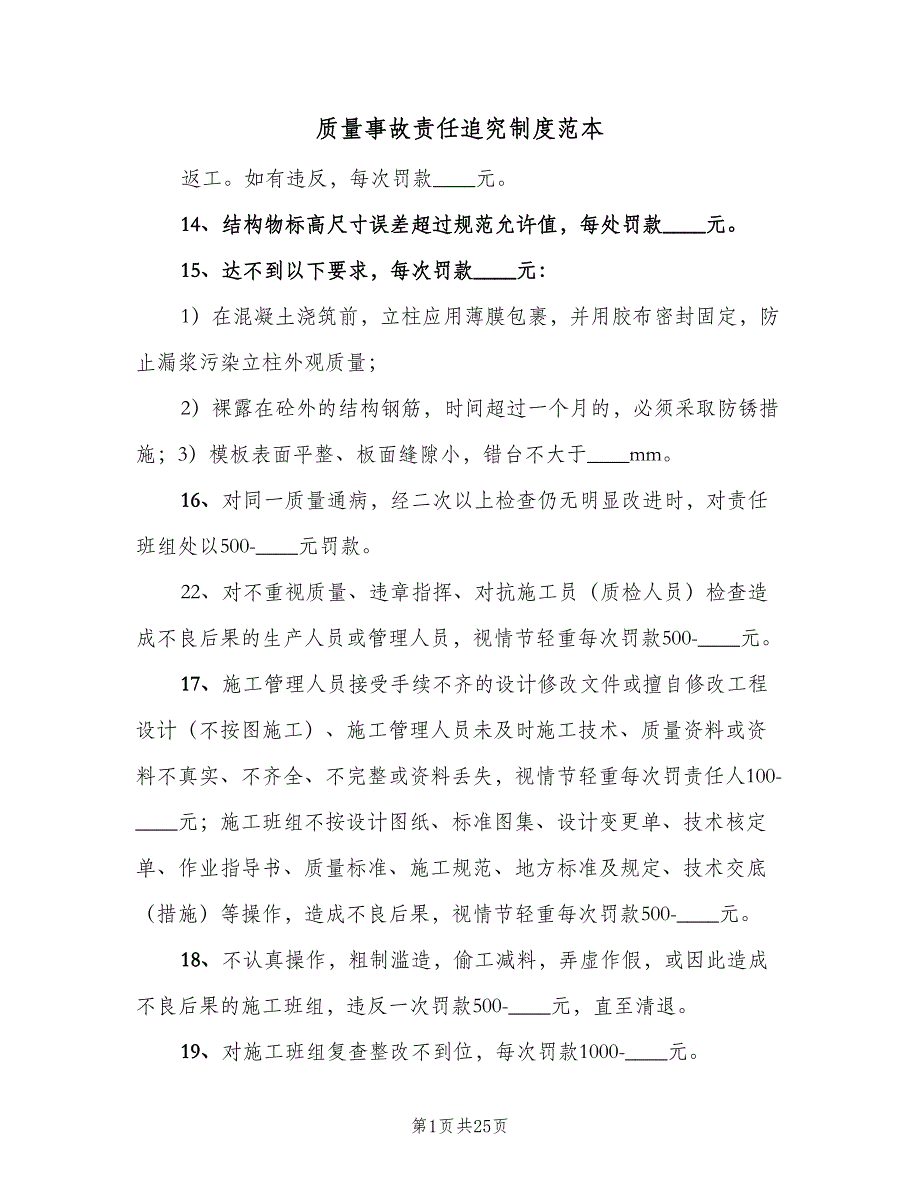 质量事故责任追究制度范本
返工。如有违反，每次罚款____元。
14、结构物标高尺寸误差超过规范允许值，每处罚款____元。
15、达不到以下要求，每次罚款____元：
1）在混凝土浇筑前，立柱应用薄膜包裹，并用胶布密封固定，防
止漏浆污染立柱外观质量；
2）裸露在砼外的结构钢筋，时间超过一个月的，必须采取防锈措
施；3）模板表面平整、板面缝隙小，错台不大于____mm。
16、对同一质量通病，经二次以上检查仍无明显改进时，对责任
班组处以500-____元罚款。
22、对不重视质量、违章指挥、对抗施工员（质检人员）检查造
成不良后果的生产人员或管理人员，视情节轻重每次罚款500-____元。
17、施工管理人员接受手续不齐的设计修改文件或擅自修改工程
设计（不按图施工）、施工管理人员未及时施工技术、质量资料或资
料不真实、不齐全、不完整或资料丢失，视情节轻重每次罚责任人100-
____元；施工班组不按设计图纸、标准图集、设计变更单、技术核定
单、作业指导书、质量标准、施工规范、地方标准及规定、技术交底
（措施）等操作，造成不良后果，视情节轻重每次罚款500-____元。
18、不认真操作，粗制滥造，偷工减料，弄虚作假，或因此造成
不良后果的施工班组，违反一次罚款500-____元，直至清退。
19、对施工班组复查整改不到位，每次罚款1000-____元。
第1页共25页